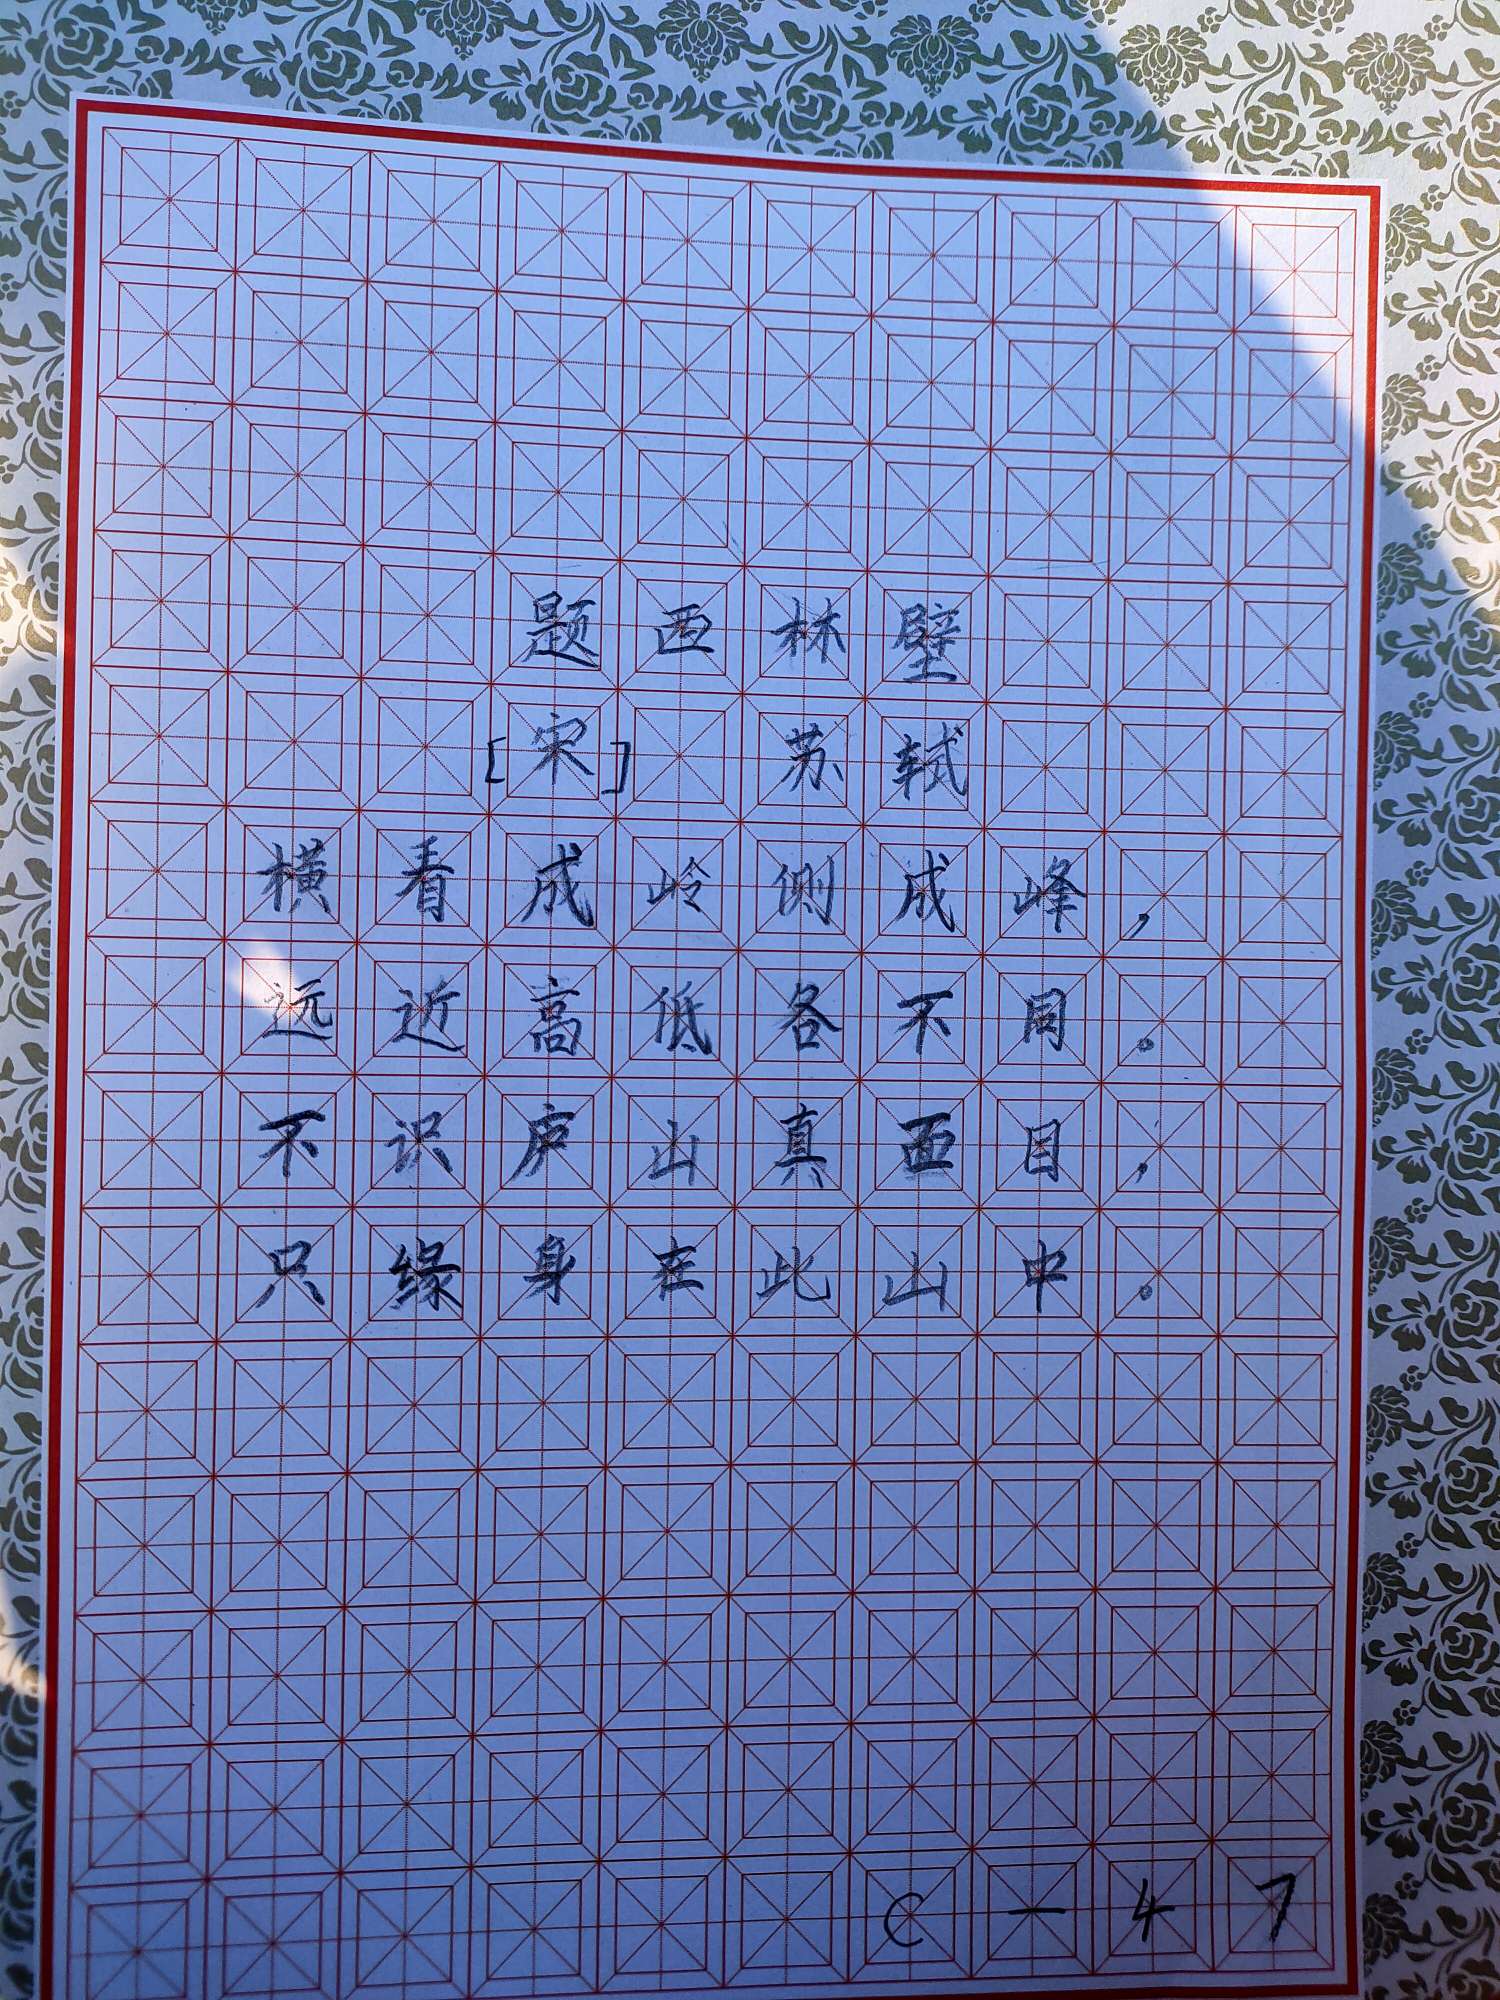 题西林壁
[宋] 苏轼
横看成岭侧成峰，
远近高低各不同。
不识庐山真面目，
只缘身在此山中。
C-47